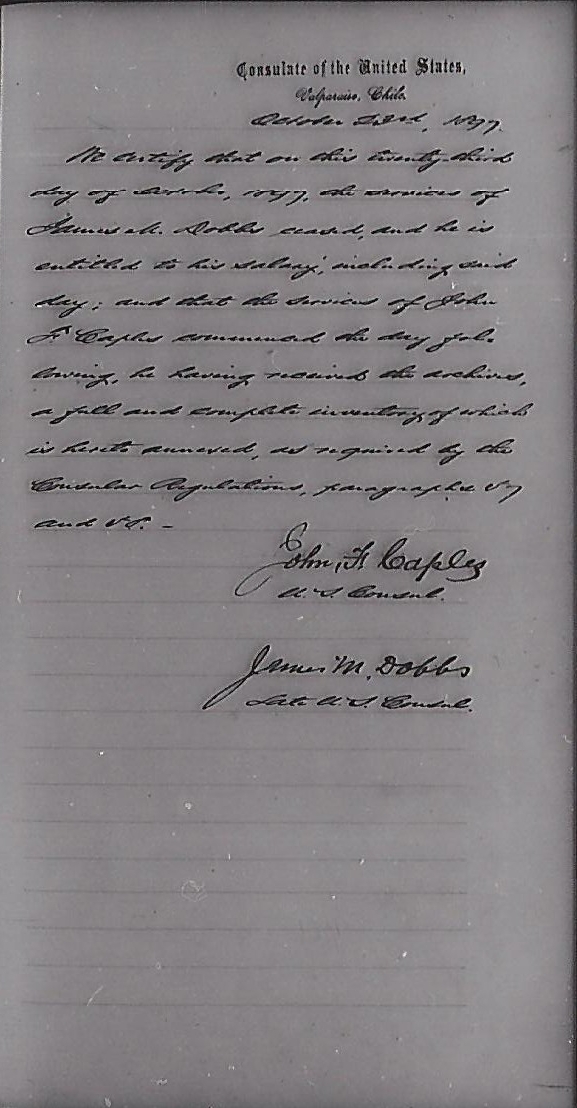 Consulate of the United States,
Valparaiso, Chile.
October 23rd, 1897.
We certify that on this twenty-third
day of October, 1897, the services of
James M. Dobbs ceased, and he is
entitled to his salary, including said
day; and that the services of John
F. Caples commenced the day fol-
lowing, he having received the archives,
a full and complete inventory of which
is hereto annexed, as required by the
Consular Regulations, paragraphs
and
John, F. Caples
U. S. Consul.
James M. Dobbs
Late U. S. Consul.